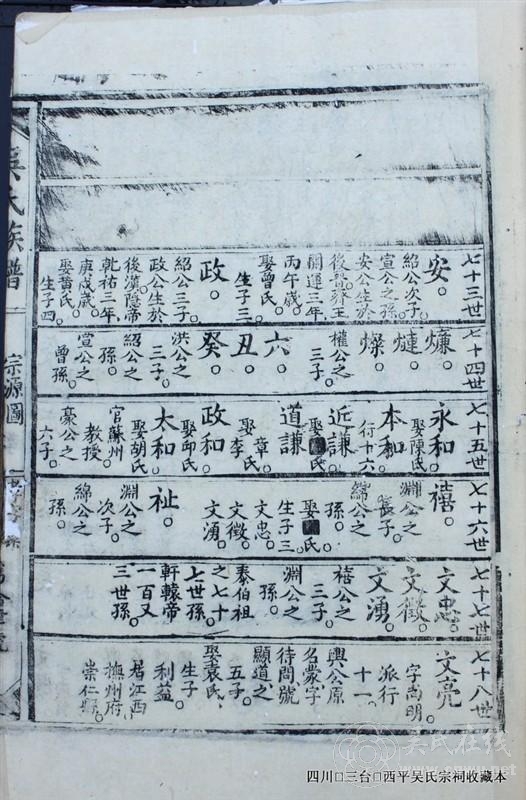 七十三世
安。
紹公次子。
宣公之孫。
安公生於
後晉齊王
開運三年
丙午歲。
娶曾氏。
生子三。
政。
紹公三子。
政公生於
後漢隱帝
乾祐三年
庚戌歲。
娶黃氏。
生子四。
七十四世
燫。
熑。
燦。
權公之
三子。
六。
丑。
癸。
洪公之
三子。
紹公之
孫。
宣公之
曾孫。
七十五世
永和。
娶陳氏。
本和。
行十六。
近謙。
娶氏。
道謙。
娶李
章。
政和。
娶邱氏
太和。
娶胡氏
官蘇州
教授。
豪公之
六子。
七十六世
禧。
淵公之
長子。
綿公之
孫。
娶氏。
生子三。
文忠。
文徵。
文湧。
祉。
淵公之
次子。
綿公之
孫。
七十七世
文忠。
文徵。
文湧。
禧公之
三子。
淵公之
孫。
泰伯祖
之七十
七世孫。
軒轅帝
一百又
三世孫。
七十八世
文亮
字尚明。
派行
十一。
興公原
名蒙字
待問號
顯道之
五子。
娶袁氏。
生子
利益
居江西
撫州府。
崇仁縣。
吳氏族譜
宗源圖
吴氏在线
四川□三台□西平吴氏宗祠收藏本